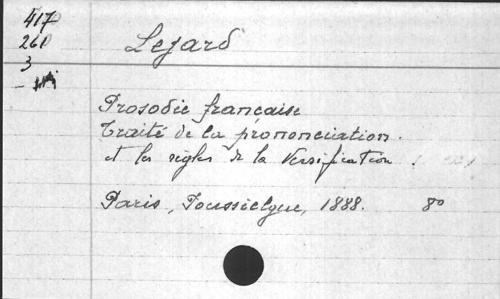 417
261
3
Lejard
Prosodie française
traité de la prononciation.
et les règles de la versification.
Paris, Poussielgue, 1888. 8°